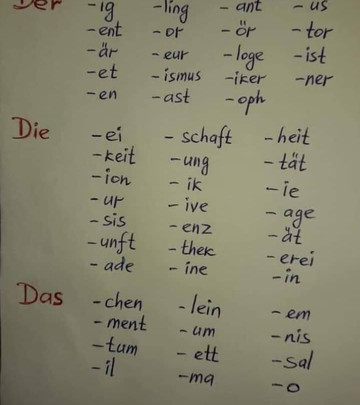 Der -ig -ling - ant - us
-ent - or - ör - tor
-är - eur - loge -ist
-et - ismus -iker -ner
- en - ast - oph
Die -ei - schaft - heit
-keit -ung - tät
- ion - ik - ie
- ur - ive - age
- sis - enz - ät
- unft - thek - erei
- ade - ine -in
Das - chen - lein - em
- ment - um - nis
- tum - ett - sal
- il - ma - o